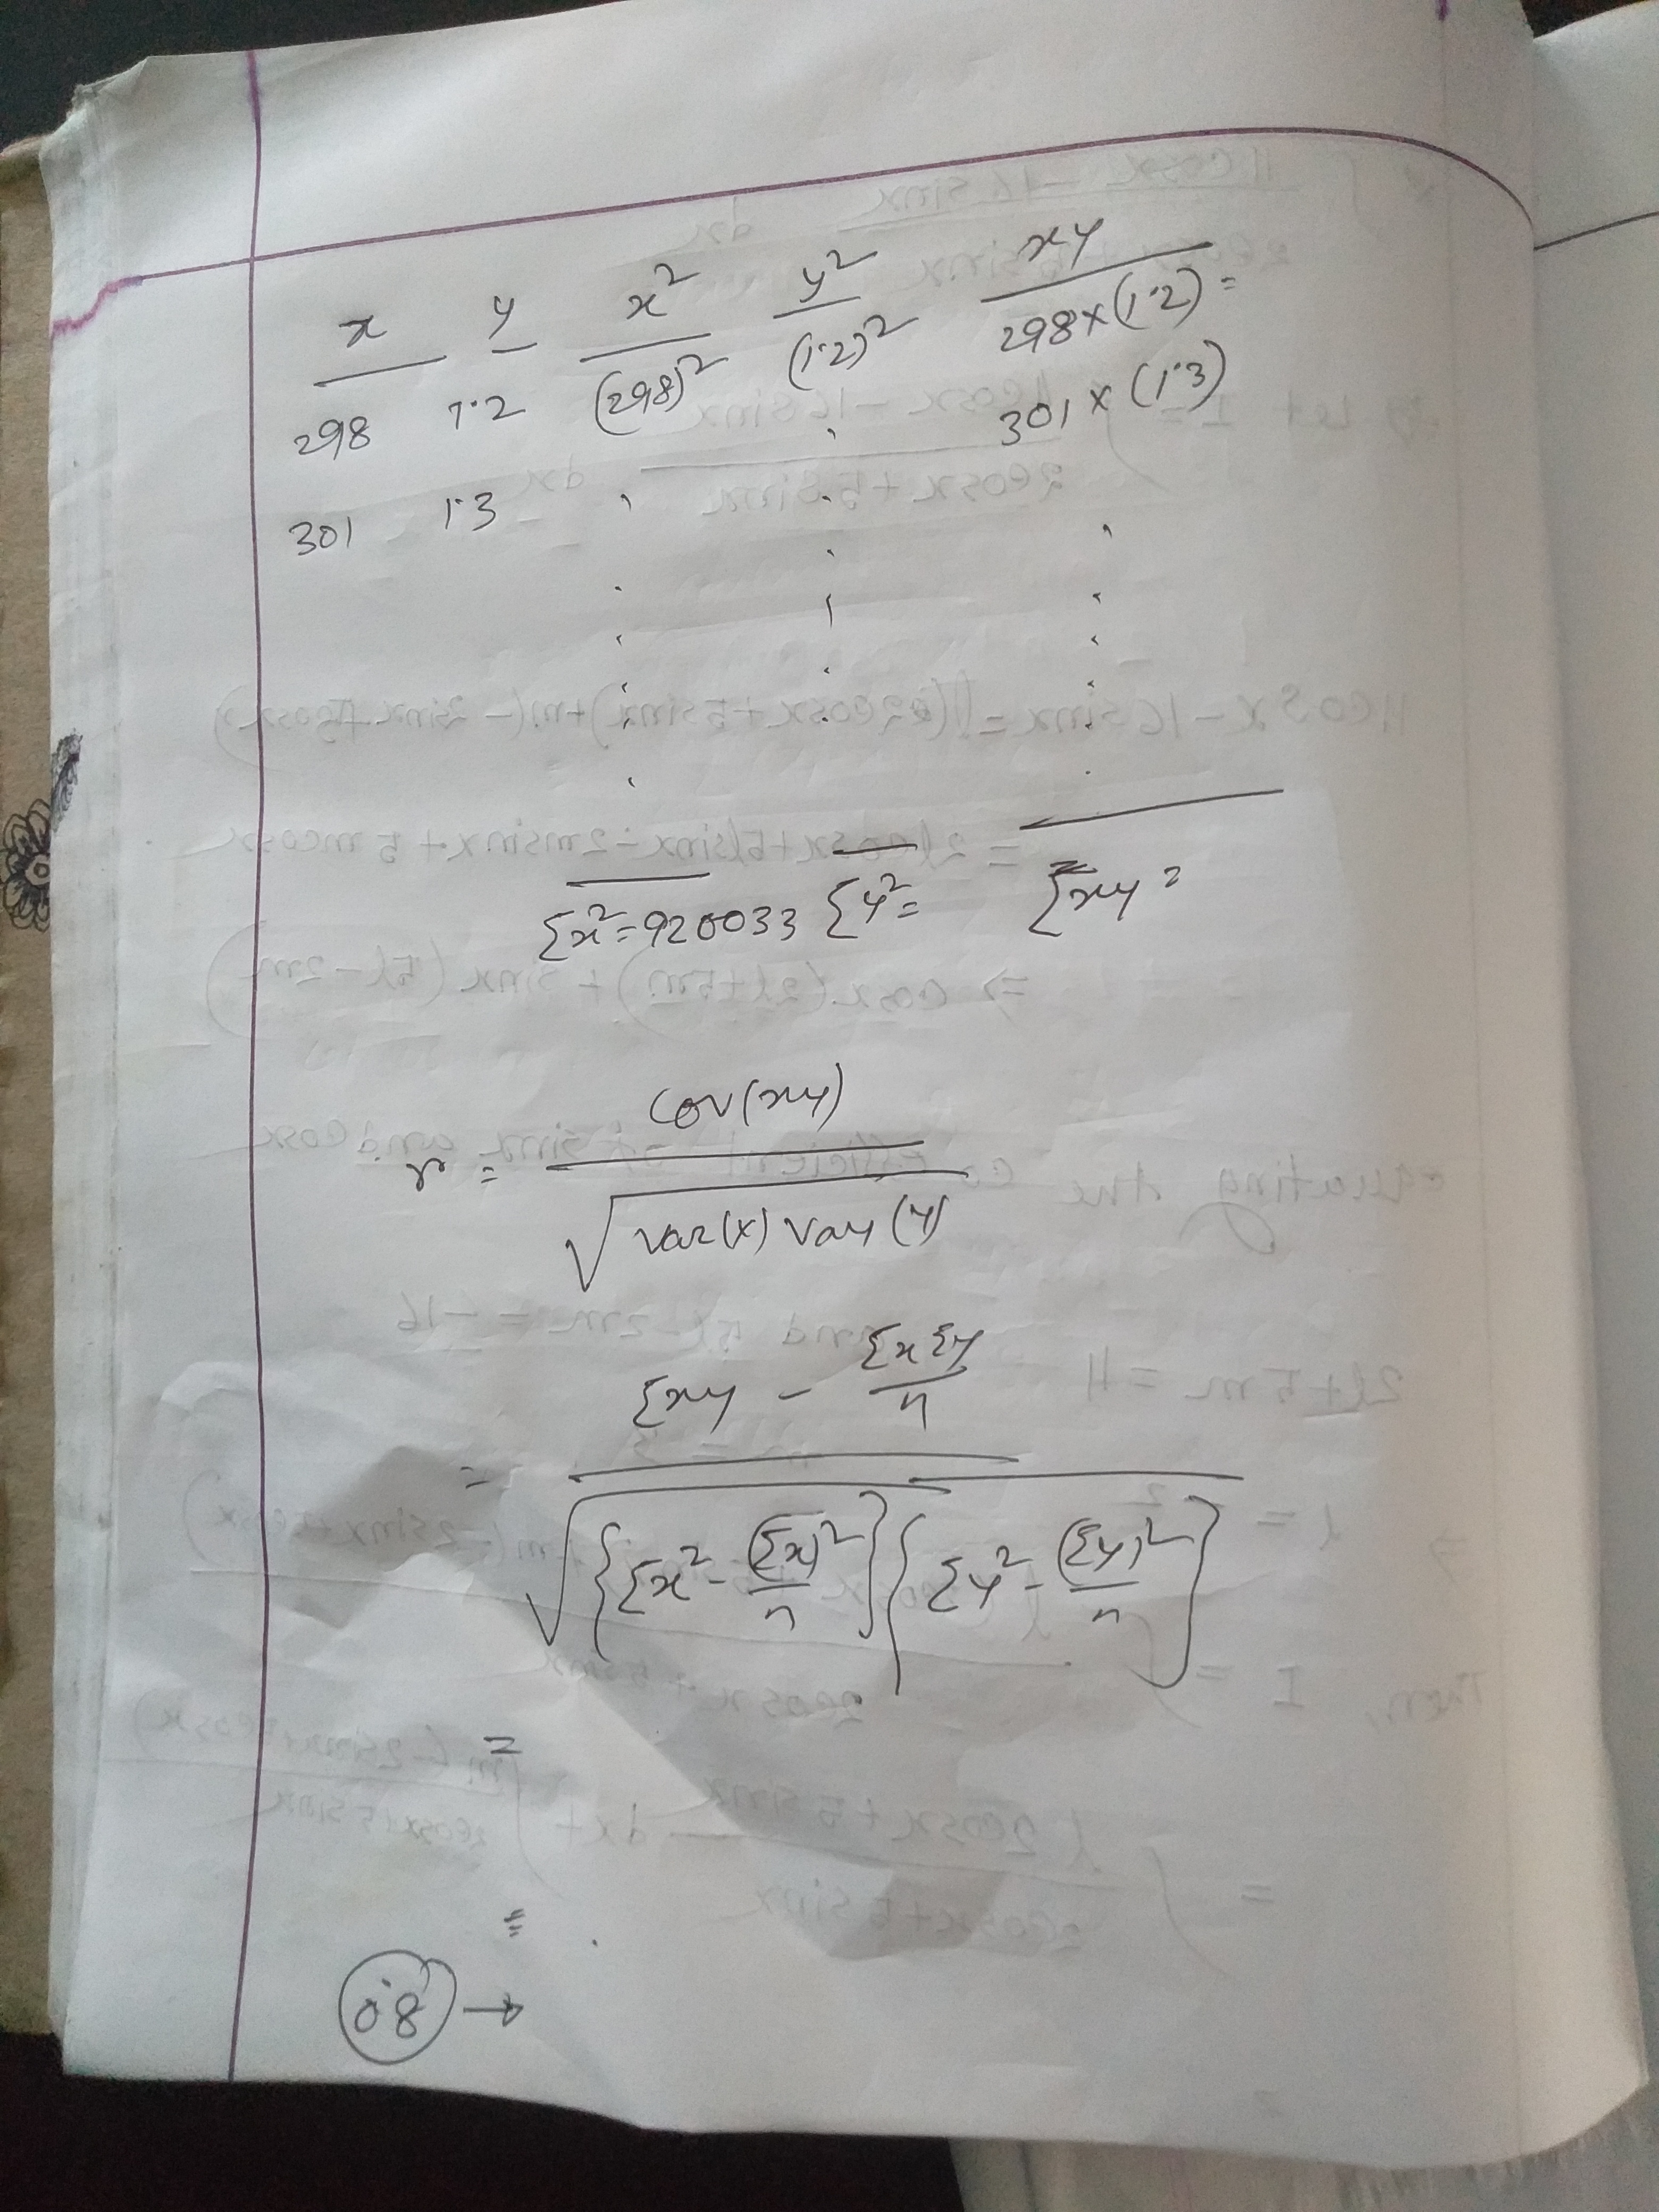 x y x² y² xy
298 1.2 (298)² (1.2)² 298×(1.2)=
301 1.3 301×(1.3)
Σx²=920033 Σy²= Σxy=
r = cov(xy) / √var(x) var(y)
= Σxy - ΣxΣy/n / √{Σx² - (Σx)²/n}{Σy² - (Σy)²/n}
=
=
0.8 →